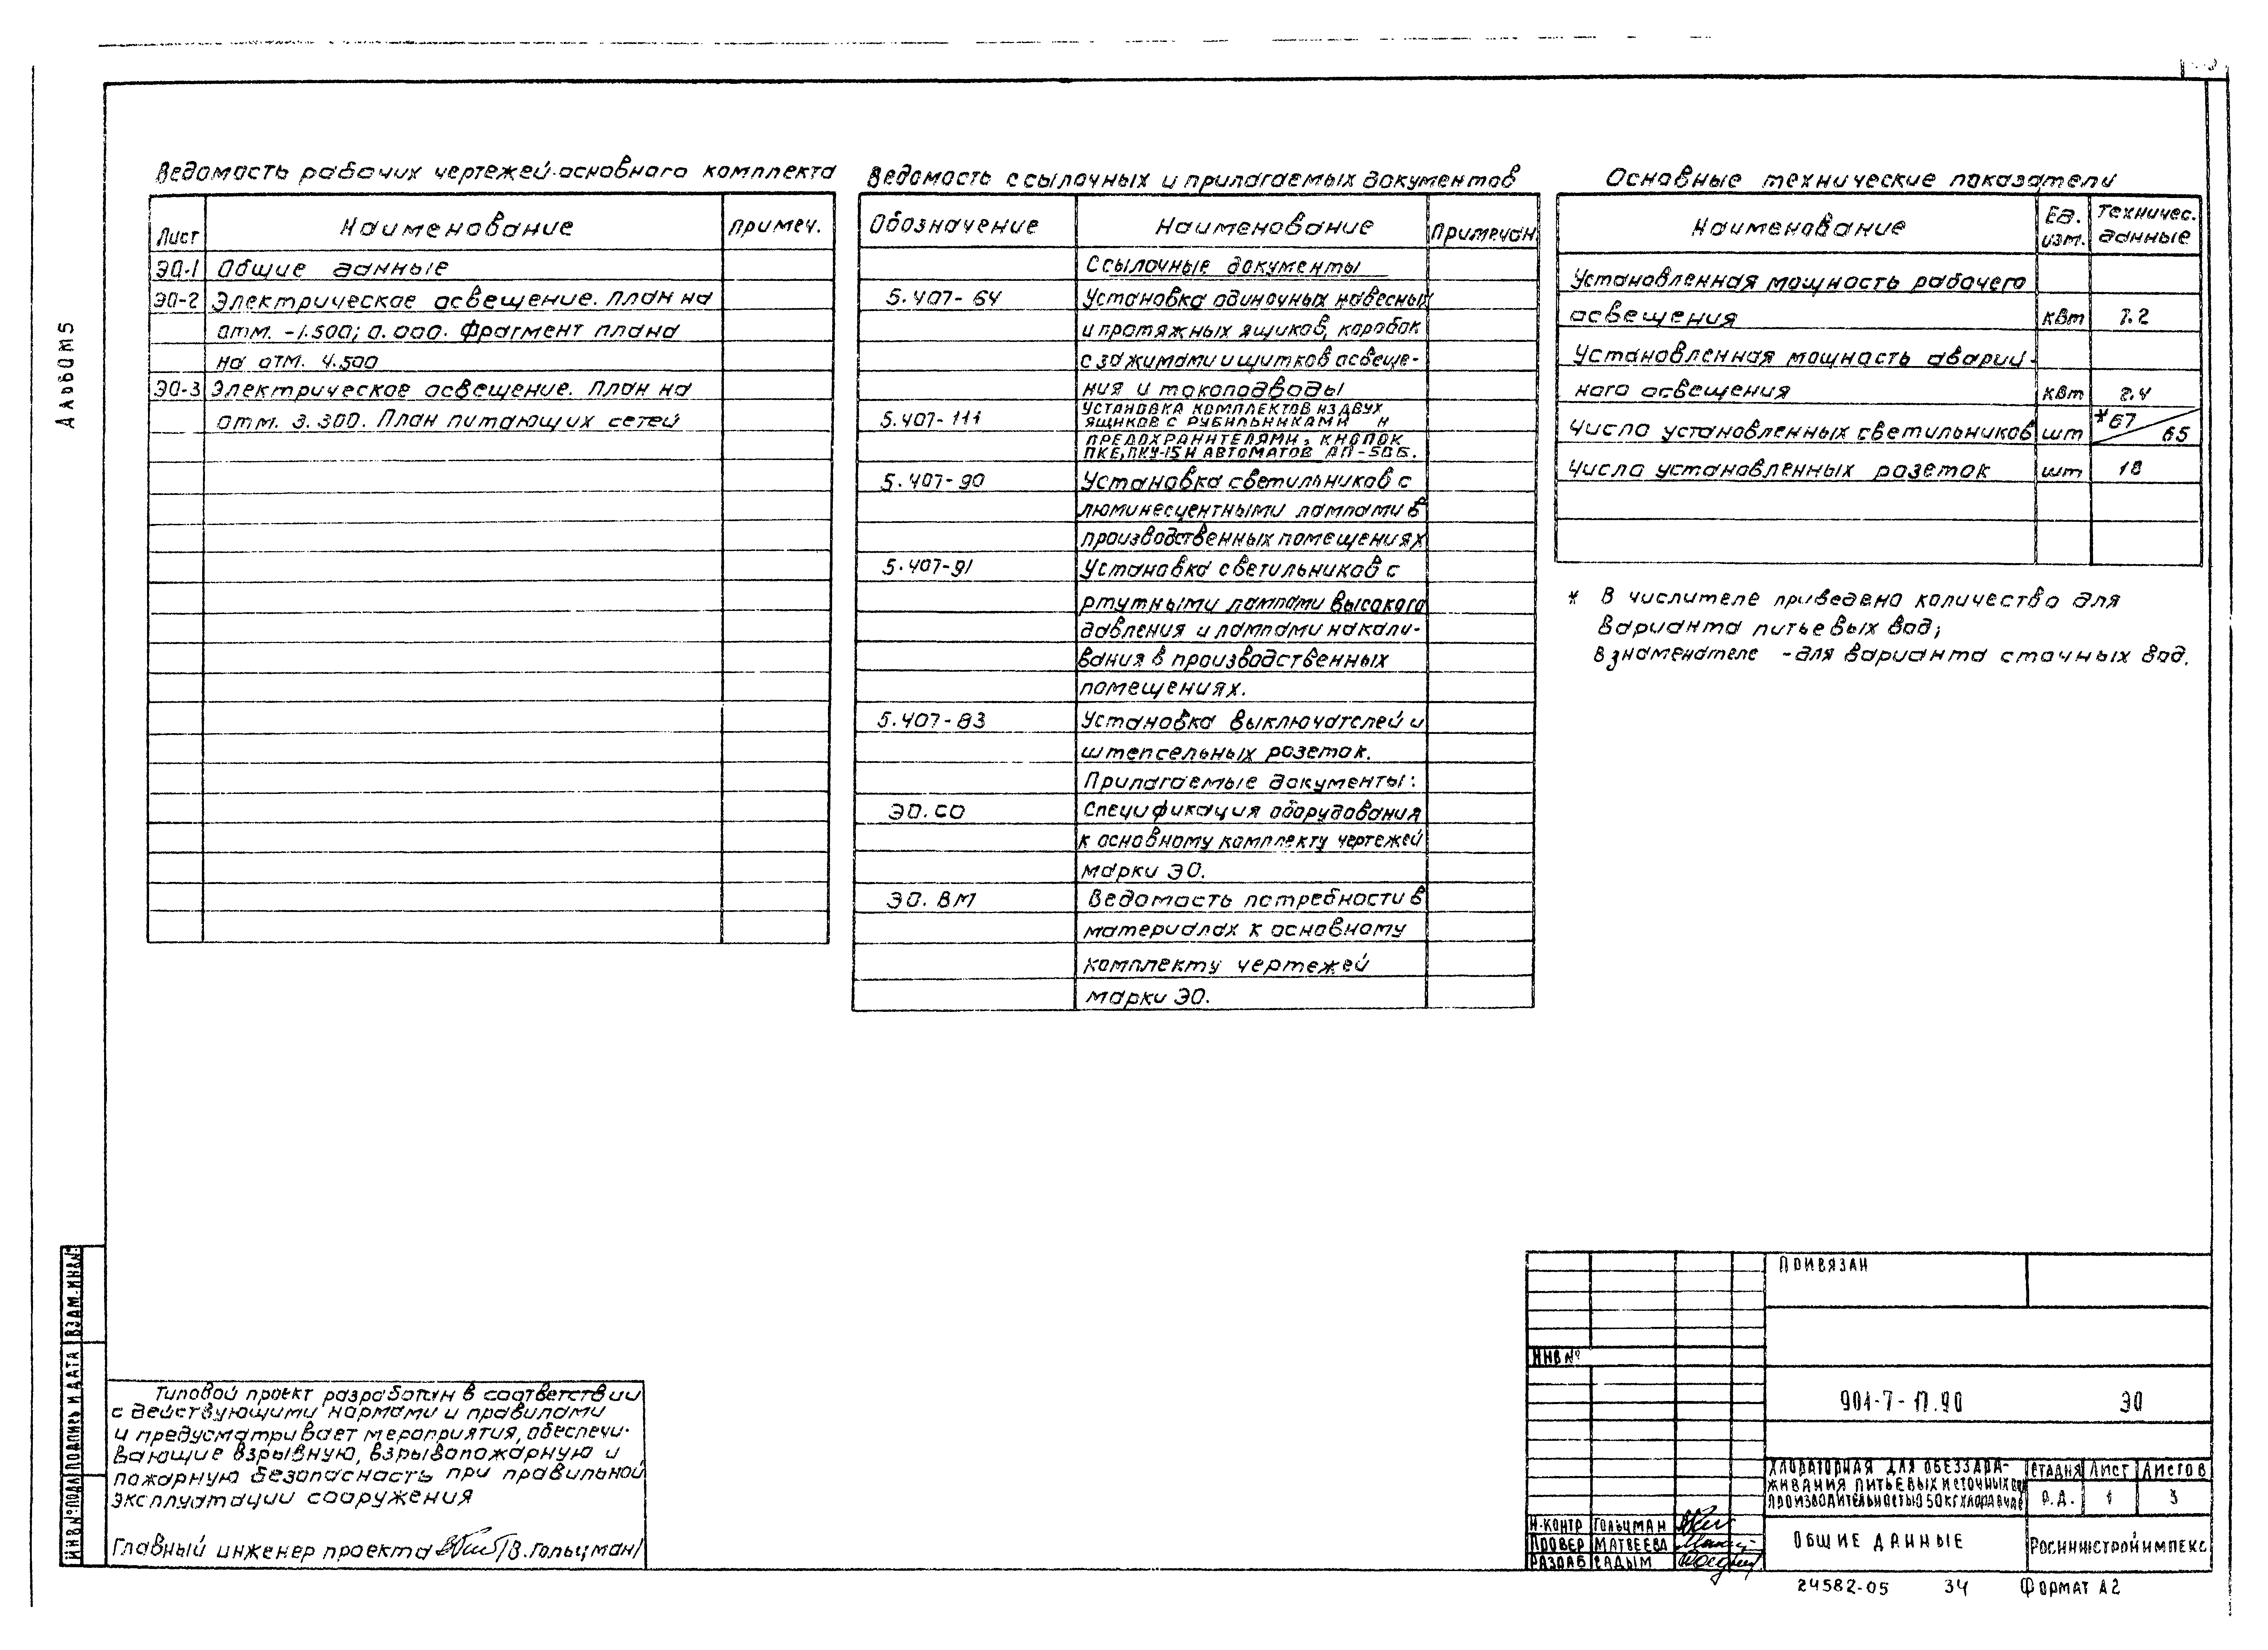 Альбом 5
Ведомость рабочих чертежей основного комплекта
Лист Наименование Примеч.
ЭО-1 Общие данные
ЭО-2 Электрическое освещение. План на
отм. -1.500; 0.000. Фрагмент плана
на отм. 4.500
ЭО-3 Электрическое освещение. План на
отм. 3.300. План питающих сетей
Ведомость ссылочных и прилагаемых документов
Обозначение Наименование Примечан.
Ссылочные документы
5.407-64 Установка одиночных навесных
и протяжных ящиков, коробок
с зажимами и щитков освеще-
ния и токоподводы
5.407-111 Установка комплектов из двух
ящиков с рубильниками и
предохранителями, кнопок
ПКЕ, ПКУ-15 и автоматов АП-50Б.
5.407-90 Установка светильников с
люминесцентными лампами в
производственных помещениях
5.407-91 Установка светильников с
ртутными лампами высокого
давления и лампами накали-
вания в производственных
помещениях.
5.407-83 Установка выключателей и
штепсельных розеток.
Прилагаемые документы:
ЭО.СО Спецификация оборудования
к основному комплекту чертежей
марки ЭО.
ЭО.ВМ Ведомость потребности в
материалах к основному
комплекту чертежей
марки ЭО.
Основные технические показатели
Наименование Ед. изм. Техничес. данные
Установленная мощность рабочего
освещения кВт 7.2
Установленная мощность аварий-
ного освещения кВт 2.4
Число установленных светильников шт *67/65
Число установленных розеток шт 18
* В числителе приведено количество для
варианта питьевых вод;
в знаменателе - для варианта сточных вод.
Инв № подл Подпись и дата Взам. инв №
Типовой проект разработан в соответствии
с действующими нормами и правилами
и предусматривает мероприятия, обеспечи-
вающие взрывную, взрывопожарную и
пожарную безопасность при правильной
эксплуатации сооружения
Главный инженер проекта /В. Гольцман/
Привязан
Инв №
901-7-17.90 ЭО
Хлораторная для обеззара-
живания питьевых и сточных вод
производительностью 50 кг хлора в час
Стадия Лист Листов
Р.Д. 1 3
Н.контр Гольцман
Провер Матвеева
Разраб Садым
Общие данные
Росинжстройимпекс
24582-05 34 Формат А2